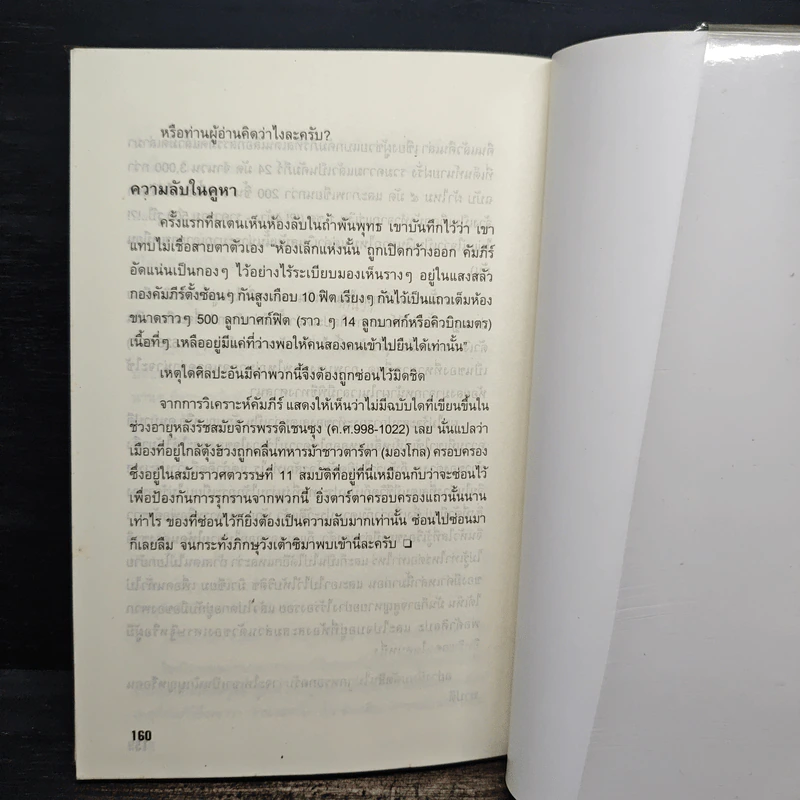 หรือท่านผู้อ่านคิดว่าไงละครับ?
ความลับในคูหา
ครั้งแรกที่สเตนเห็นห้องลับในถ้ำพันพุทธ เขาบันทึกไว้ว่า เขา
แทบไม่เชื่อสายตาตัวเอง “ห้องเล็กแห่งนั้น ถูกเปิดกว้างออก คัมภีร์
อัดแน่นเป็นกองๆ ไว้อย่างไร้ระเบียบมองเห็นรางๆ อยู่ในแสงสลัว
กองคัมภีร์ตั้งซ้อนๆ กันสูงเกือบ 10 ฟิต เรียงๆ กันไว้เป็นแถวเต็มห้อง
ขนาดราวๆ 500 ลูกบาศก์ฟิต (ราว ๆ 14 ลูกบาศก์หรือคิวบิกเมตร)
เนื้อที่ๆ เหลืออยู่มีแค่ที่ว่างพอให้คนสองคนเข้าไปยืนได้เท่านั้น”
เหตุใดศิลปะอันมีค่าพวกนี้จึงต้องถูกซ่อนไว้มิดชิด
จากการวิเคราะห์คัมภีร์ แสดงให้เห็นว่าไม่มีฉบับใดที่เขียนขึ้นใน
ช่วงอายุหลังรัชสมัยจักรพรรดิเชนซุง (ค.ศ.998-1022) เลย นั่นแปลว่า
เมืองที่อยู่ใกล้ตุ้งฮ้วงถูกคลื่นทหารม้าชาวตาร์ตา (มองโกล) ครอบครอง
ซึ่งอยู่ในสมัยราวศตวรรษที่ 11 สมบัติที่อยู่ที่นี่เหมือนกับว่าจะซ่อนไว้
เพื่อป้องกันการรุกรานจากพวกนี้ ยิ่งตาร์ตาครอบครองแถวนั้นนาน
เท่าไร ของที่ซ่อนไว้ก็ยิ่งต้องเป็นความลับมากเท่านั้น ซ่อนไปซ่อนมา
ก็เลยลืม จนกระทั่งภิกษุวังเต้าซิมาพบเข้านี่ละครับ ❏
160